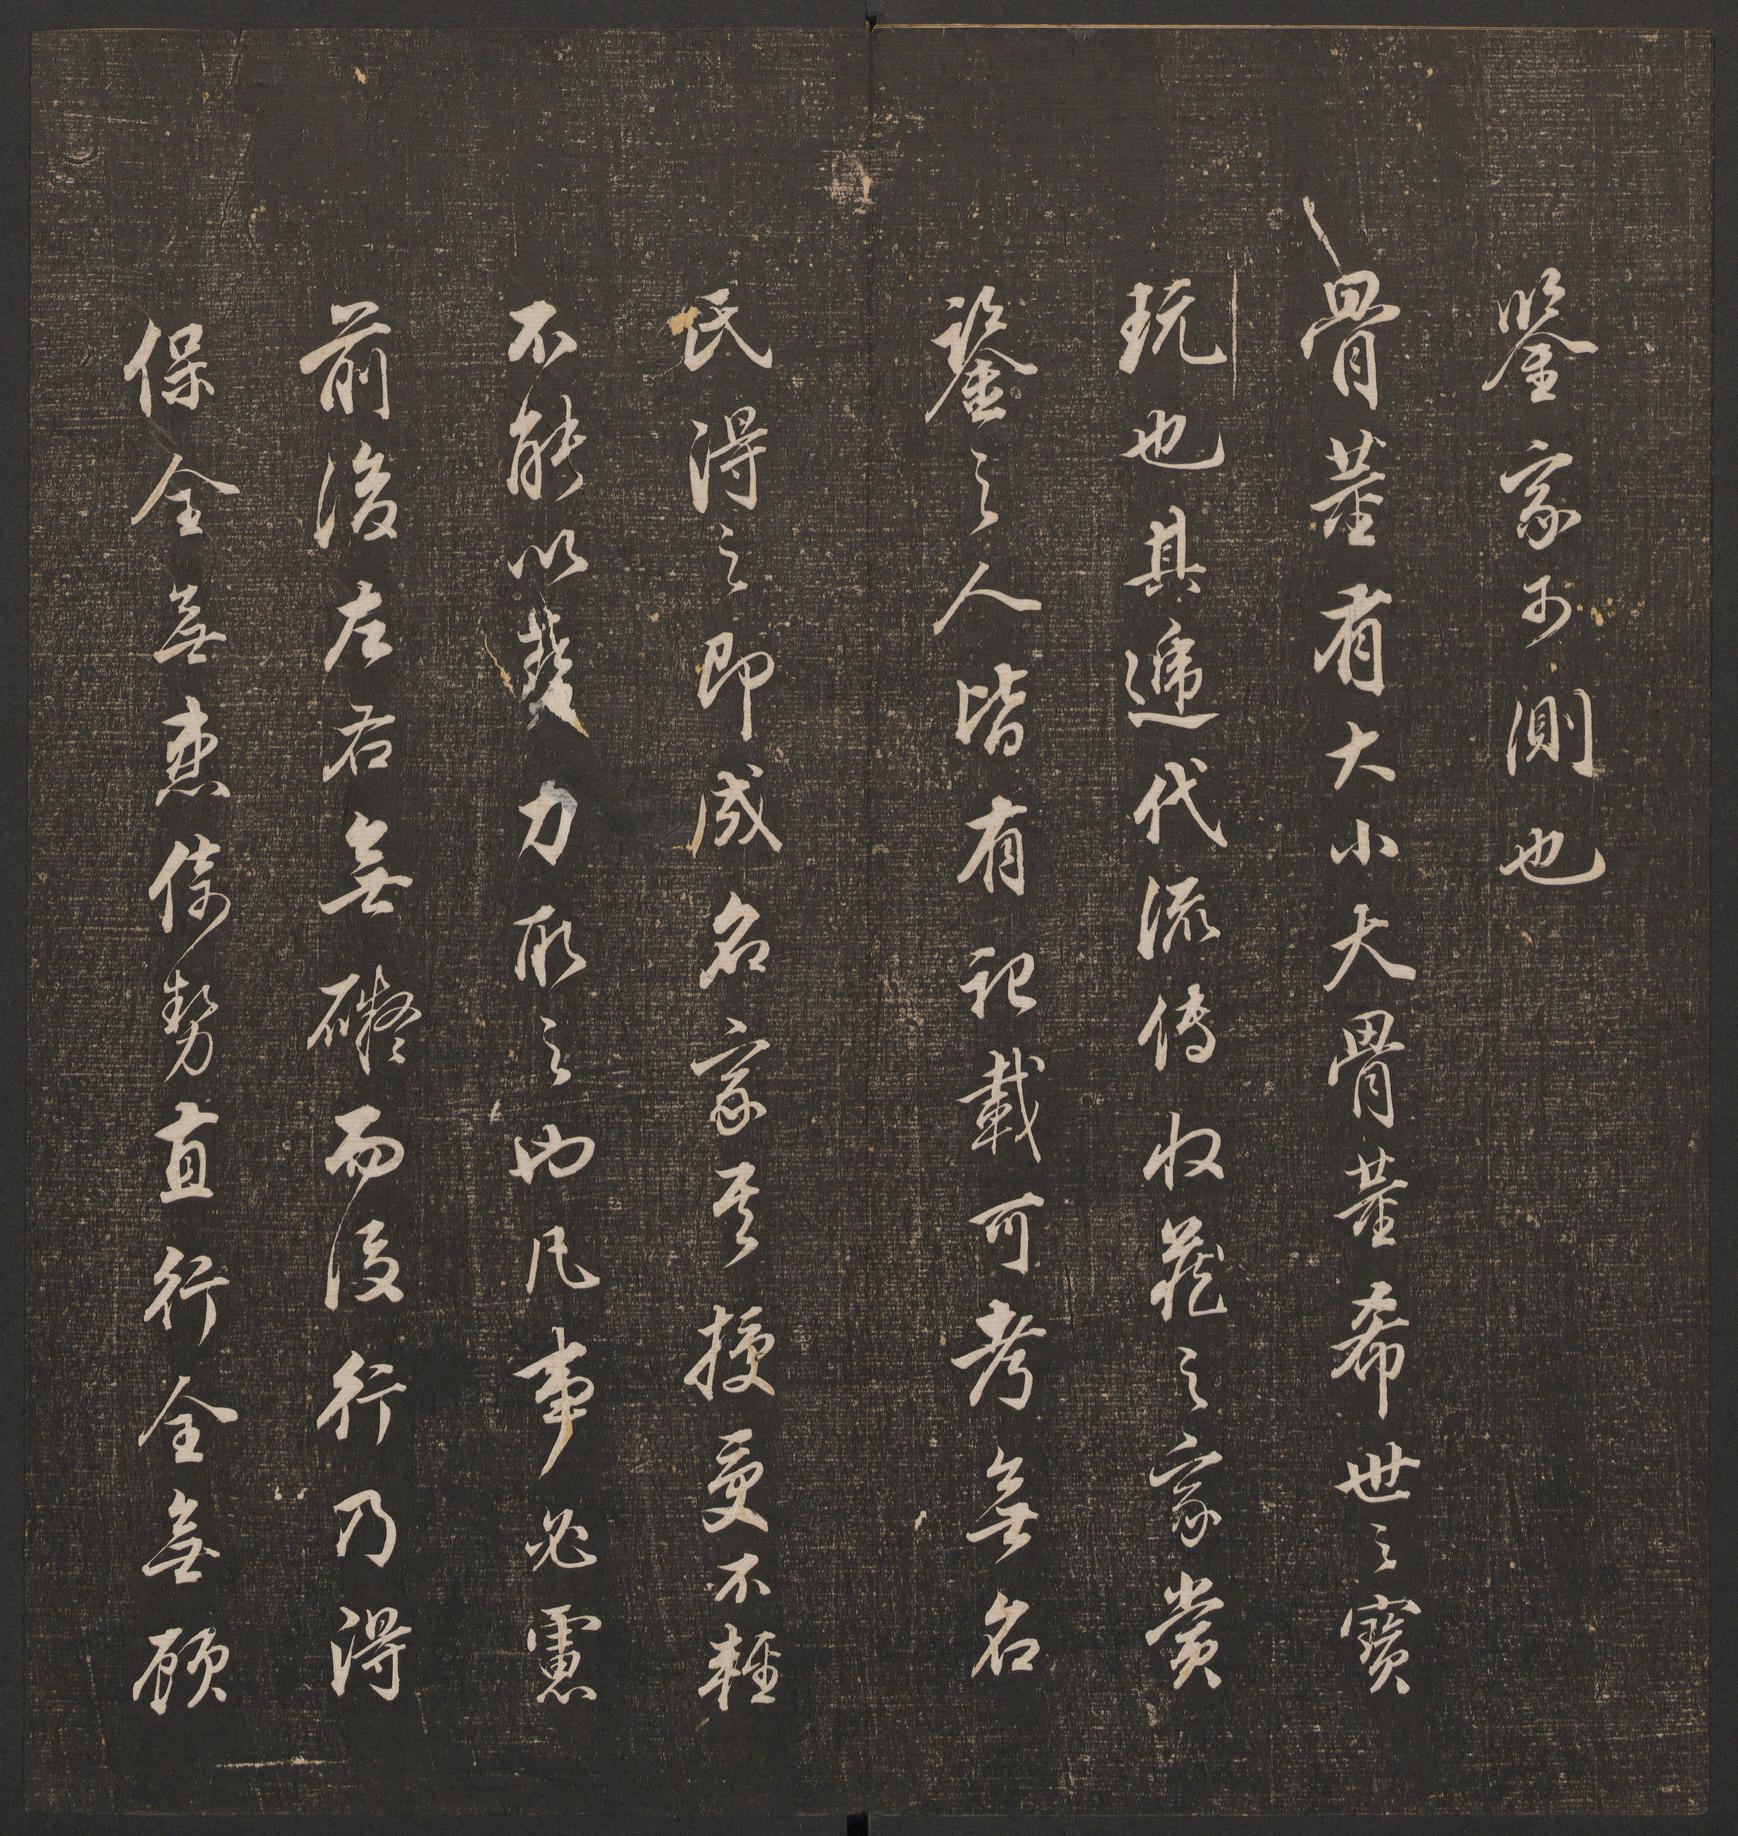 鑒家可測也
骨董有大小大骨董希世之寶
玩也其遞代流傳收藏之家賞
鑒之人皆有記載可考無名
氏得之即成名家其授受不輕
不能以力取之也凡事必慮
前後左右無礙而後行乃得
保全無患倚勢直行全無顧